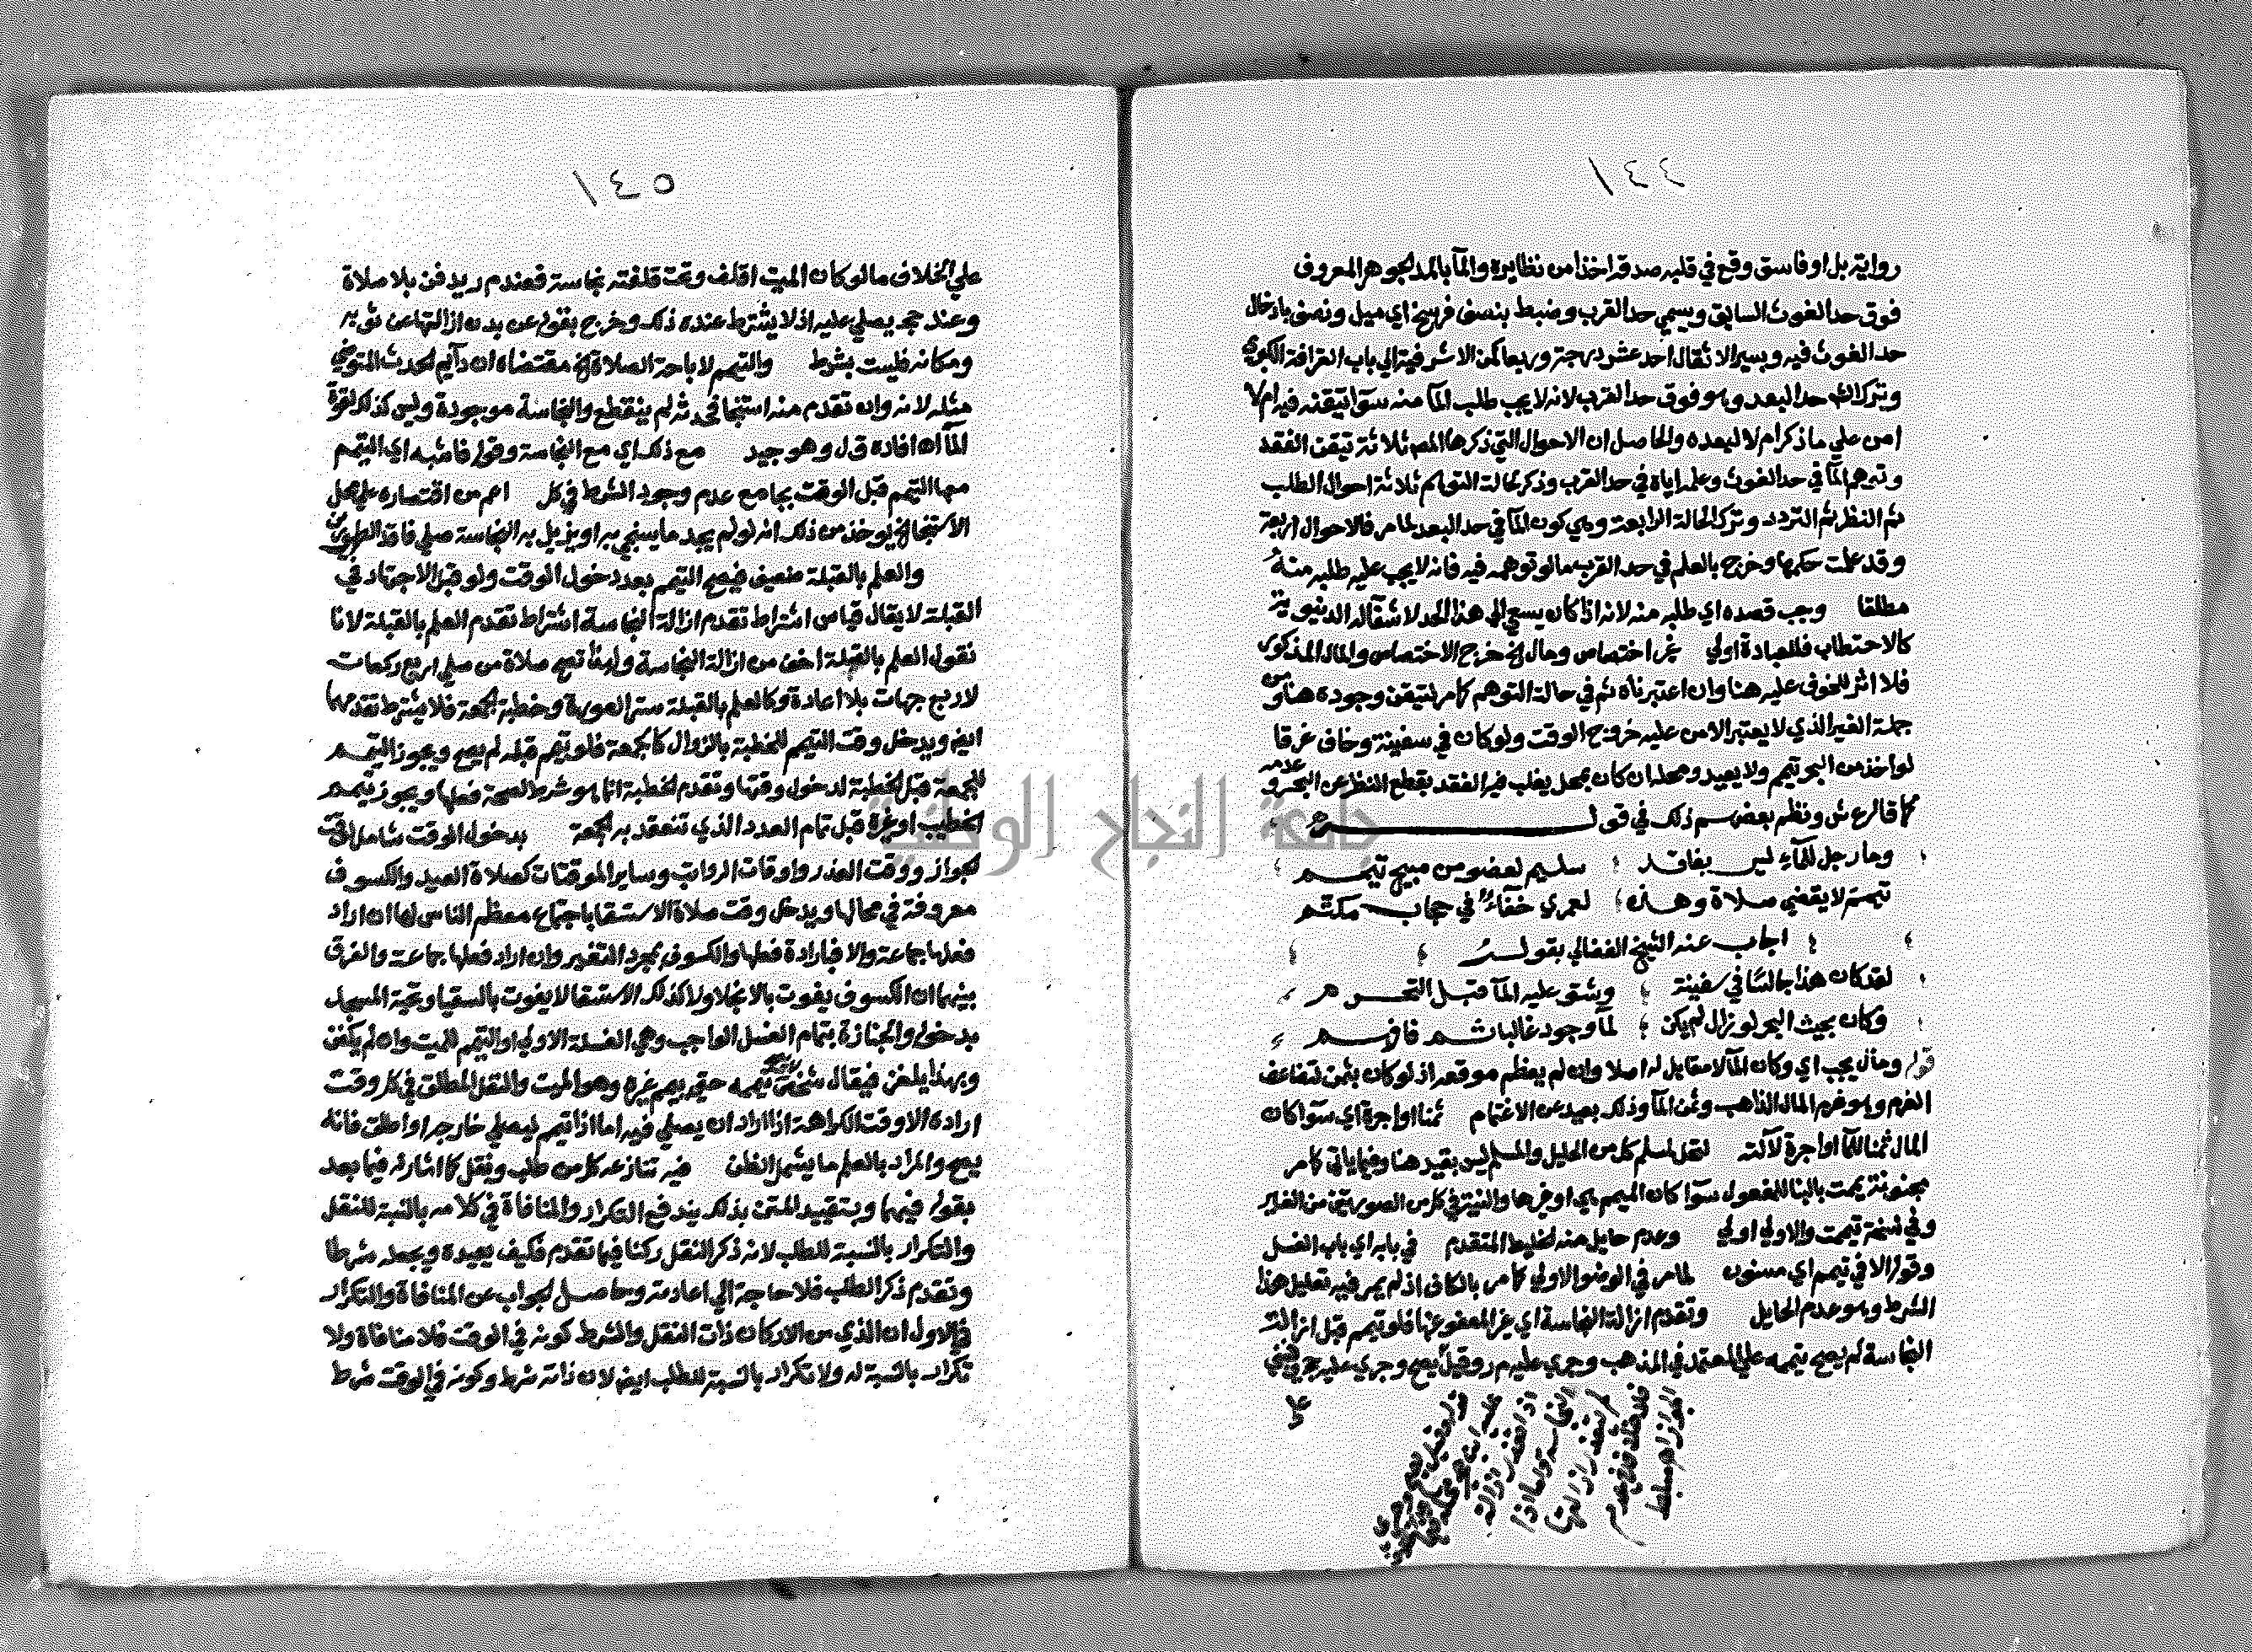 ١٤٤
رواية بل او فاسق وقع في قلبه صدقه اخذا من نظايره والمآ بالمد الجوهر المعروف
فوق حد الغوث السابق ويسمي حد القرب وضبط بنصف فرسخ اي ميل ونصف بادخال
حد الغوث فيه وبسير الاثقال احد عشر درجة وربعا كمن الاشرفية الي باب القرافة
وترك حد البعد وهو فوق حد القرب لانه لا يجب طلب المآ منه سوآ تيقنه فيه ام لا
امن علي ما ذكر ام لا لبعده والحاصل ان الاحوال التي ذكرها المص ثلاثة تيقن الفقد
وتوهم المآ في حد الغوث وعلمه اياه في حد القرب وذكر لحالة التوهم ثلاثة احوال الطلب
ثم النظر ثم التردد وترك الحالة الرابعة وهي كون المآ في حد البعد لما مر فالاحوال اربعة
وقد علمت حكمها وخرج بالعلم في حد القرب ما لو توهمه فيه فانه لا يجب عليه طلبه منه
مطلقا وجب قصده اي طلبه منه لانه اذا كان يسعي الي هذا الحد لاشغاله الدنيوية
كالاحتطاب فللعبادة اولي غير اختصاص ومال الخ خرج الاختصاص والمال المذكور
فلا اثر للخوف عليه هنا وان اعتبرناه ثم في حالة التوهم كما مر لتيقن وجوده هنا ومن
جملة الغير الذي لا يعتبر الامن عليه خروج الوقت ولو كان في سفينة وخاف غرقا
لو اخذ من البحر تيمم ولا يعيد ومحله ان كان بمحل يغلب فيه الفقد بقطع النظر عن البحر وعدمه
كما قال ع ش ونظم بعضهم ذلك في قوله
وما رجل للمآء ليس بفاقد سليم لعضو من مبيح تيمم
تيمم لا يقضي صلاة وهذه لعمري خفآء في حجاب مكتم
اجاب عنه الشيخ الفضالي بقوله
لقد كان هذا جالسا في سفينة وشق عليه المآ قبل التحرم
وكان بحيث البحر لو زال لم يكن لمآ وجود غالبا ثم فافهم
قوله ومال يجب اي وكان المآ لا مقابل له اصلا وان لم يعظم موقعه اذ لو كان بثمن لتضاعف
الغرم وهو غرم المال الذاهب وثمن المآ وذلك بعيد عن الاغتمام ثمنا او اجرة اي سوآ كان
المال ثمنا للمآ او اجرة لآلته لتقل لمسلم كل من الحليل والمسلم ليس بقيد هنا وفيما ياتي كما مر
مجنونة يممت بالبنا للمفعول سوآ كان الميمم هي او غيرها والنية في كل من الصورتين من الغير
وفي نسخة تيممت والاولي اولي وعدم حايل منه الخليط المتقدم في بابه اي باب الغسل
وقوله الا في تيمم اي مسنون لما مر في الوضو الاولي كما مر بالكاف اذ لم يمر فيه تعليل هذا
الشرط وهو عدم الحايل وتقدم ازالة النجاسة اي غير المعفو عنها فلو تيمم قبل ازالة
النجاسة لم يصح تيممه علي المعتمد في المذهب وجري عليه م ر وقيل يصح وجري عليه حج
١٤٥
علي الخلاف ما لو كان الميت اقلف وتحت قلفته نجاسة فعند م ر يدفن بلا صلاة
وعند حج يصلي عليه اذ لا يشترط عنده ذلك وخرج بقوله عن بدن ازالتها عن ثوبه
ومكانه فليست بشرط والتيمم لاباحة الصلاة الخ مقتضاه ان دآيم الحدث المتوضي
مثله لانه وان تقدم منه استنجا فحدثه لم ينقطع والنجاسة موجودة وليس كذلك لقوة
المآ افاده ق ل وهو جيد مع ذلك اي مع النجاسة وقوله فاشبه اي التيمم
معها التيمم قبل الوقت بجامع عدم وجود الشرط في كل اعم من اقتصاره علي محل
الاستنجا الخ يوخذ من ذلك انه لو لم يجد ما يستنجي به او يزيل به النجاسة صلي فاقد الطهورين
والعلم بالقبلة ضعيف فيصح التيمم بعد دخول الوقت ولو قبل الاجتهاد في
القبلة لا يقال قياس اشتراط تقدم ازالة النجاسة اشتراط تقدم العلم بالقبلة لانا
نقول العلم بالقبلة اخف من ازالة النجاسة ولهذا تصح صلاة من صلي اربع ركعات
لاربع جهات بلا اعادة وكالعلم بالقبلة ستر العورة وخطبة الجمعة فلا يشترط تقدمهما
ايض ويدخل وقت التيمم للخطبة بالزوال كالجمعة فلو تيمم قبله لم يصح ويجوز التيمم
للجمعة قبل الخطبة لدخول وقتها وتقدم الخطبة انما هو شرط لصحة فعلها ويجوز تيمم
الخطيب او غيره قبل تمام العدد الذي تنعقد به الجمعة بدخول الوقت شامل لوقت
الجواز ووقت العذر واوقات الرواتب وساير الموقتات كصلاة العيد والكسوف
معروفة في محالها ويدخل وقت صلاة الاستسقا باجتماع معظم الناس لها ان اراد
فعلها جماعة والا فبارادة فعلها والكسوف بمجرد التغير وان اراد فعلها جماعة والفرق
بينهما ان الكسوف يفوت بالانجلا ولا كذلك الاستسقا لا يفوت بالسقيا وتحية المسجد
بدخوله والجنازة بتمام الغسل الواجب وهي الغسلة الاولي او التيمم للميت وان لم يكفن
وبهذا يلغز فيقال شخص لا يصح تيممه حتي ييمم غيره وهو الميت والنفل المطلق في كل وقت
اراده الا وقت الكراهة اذا اراد ان يصلي فيه اما اذا تيمم ليصلي خارجه او اطلق فانه
يصح والمراد بالعلم ما يشمل الظن فيه تنازعه كل من طلب ونقل كما اشار له فيما بعد
بقوله فيهما وبتقييد المتن بذلك يندفع التكرار والمنافاة في كلامه بالنسبة للنقل
والتكرار بالنسبة للطلب لانه ذكر النقل ركنا فيما تقدم فكيف يعيده ويجعله شرطا
وتقدم ذكر الطلب فلا حاجة الي اعادته وحاصل الجواب عن المنافاة والتكرار
في الاول ان الذي من الاركان ذات النقل والشرط كونه في الوقت فلا منافاة ولا
تكرار بالنسبة له ولا تكرار بالنسبة للطلب ايض لان ذاته شرط وكونه في الوقت شرط